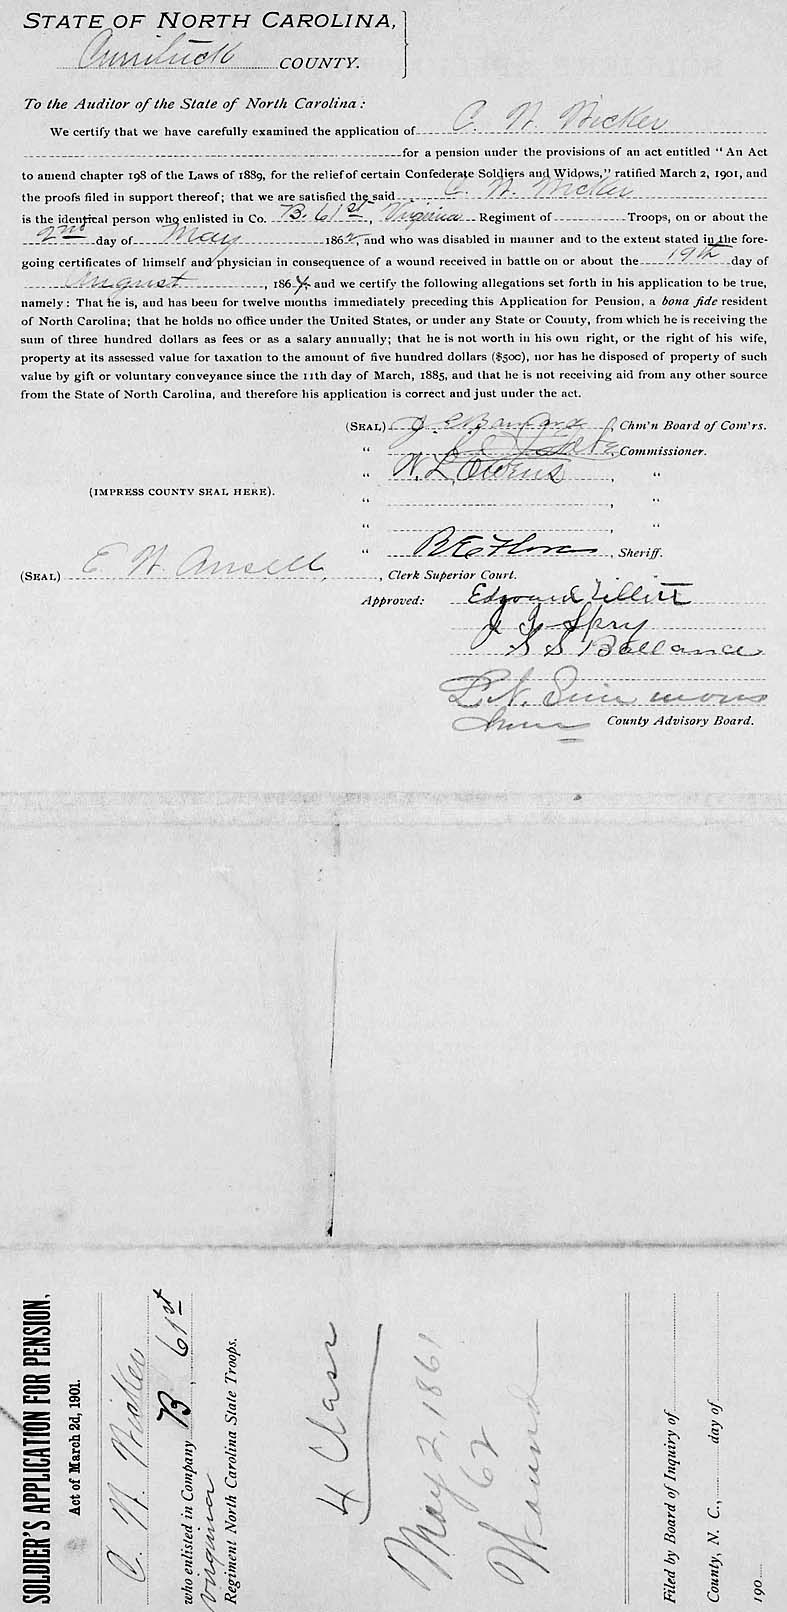 STATE OF NORTH CAROLINA,
Currituck COUNTY.
To the Auditor of the State of North Carolina:
We certify that we have carefully examined the application of C. W. Wicker
for a pension under the provisions of an act entitled "An Act
to amend chapter 198 of the Laws of 1889, for the relief of certain Confederate Soldiers and Widows," ratified March 2, 1901, and
the proofs filed in support thereof; that we are satisfied the said C. W. Wicker
is the identical person who enlisted in Co. B. 61st, Virginia Regiment of Troops, on or about the
2nd day of May 1862, and who was disabled in manner and to the extent stated in the fore-
going certificates of himself and physician in consequence of a wound received in battle on or about the 19th day of
August, 1864, and we certify the following allegations set forth in his application to be true,
namely: That he is, and has been for twelve months immediately preceding this Application for Pension, a bona fide resident
of North Carolina; that he holds no office under the United States, or under any State or County, from which he is receiving the
sum of three hundred dollars as fees or as a salary annually; that he is not worth in his own right, or the right of his wife,
property at its assessed value for taxation to the amount of five hundred dollars ($500), nor has he disposed of property of such
value by gift or voluntary conveyance since the 11th day of March, 1885, and that he is not receiving aid from any other source
from the State of North Carolina, and therefore his application is correct and just under the act.
(SEAL) Chm'n Board of Com'rs.
" Commissioner.
" W. L. Owens, "
" , "
" , "
(IMPRESS COUNTY SEAL HERE).
" Sheriff.
(SEAL) E. W. Ansell, Clerk Superior Court.
Approved: Edward Tillitt
Spry
S S Ballance
L. N. Simmons
County Advisory Board.
SOLDIER'S APPLICATION FOR PENSION,
Act of March 2d, 1901.
C. W. Wicker
who enlisted in Company B, 61st
Virginia
Regiment North Carolina State Troops.
4 Class
May 2, 1861
62
Wound
Filed by Board of Inquiry of
County, N. C., day of
190